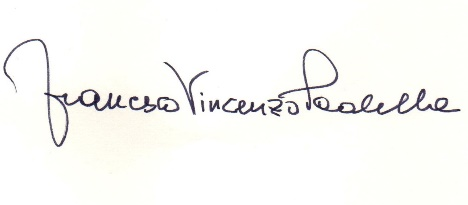 Francesco Vincenzo Paolella